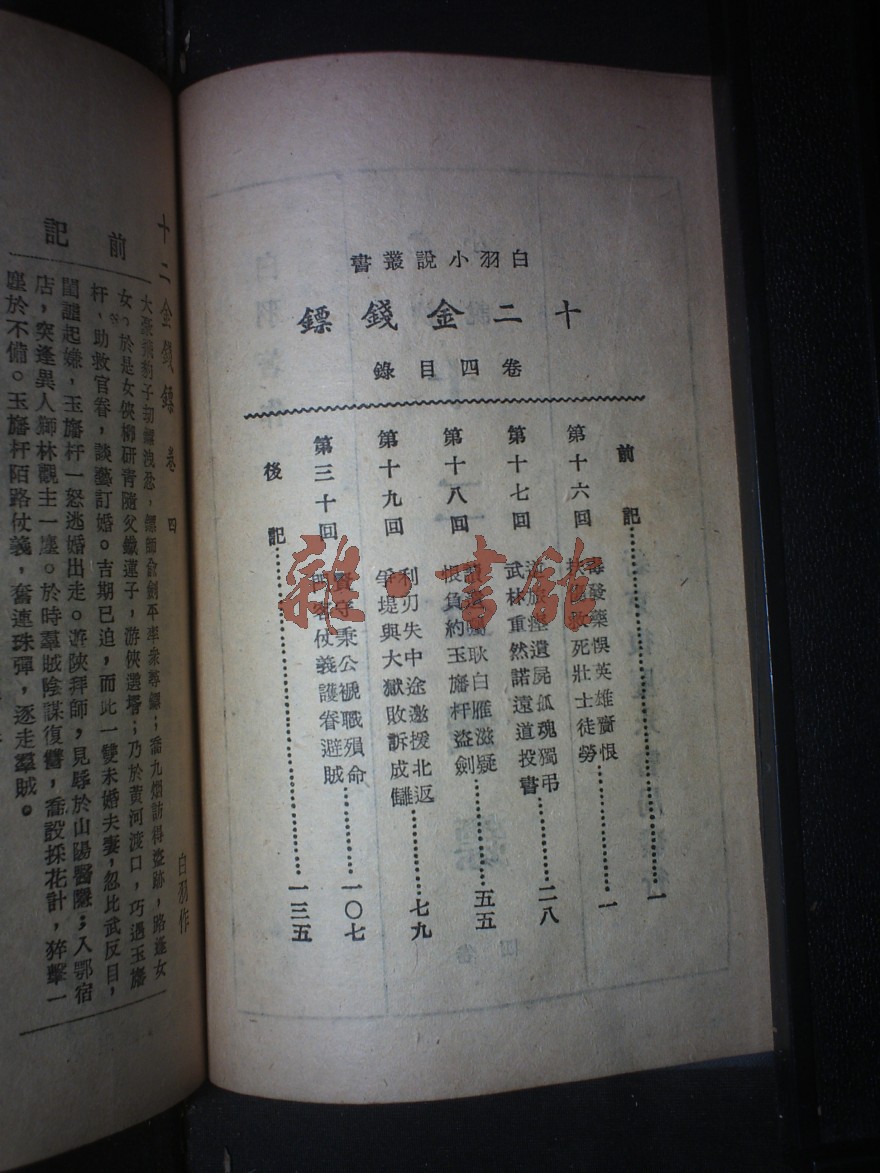 白羽小說叢書
十二金錢鏢
卷四目錄
前記⋯⋯一
第十六回 毒發藥悞英雄齎恨
救死壯士徒勞⋯⋯一
第十七回 遺屍孤魂獨弔
武林重然諾遠道投書⋯⋯二八
第十八回 遺囑耿白雁滋疑
悵負約玉旛杆盜劍⋯⋯五五
第十九回 利刃失中途邀援北返
爭堤與大獄敗訴成讎⋯⋯七九
第三十回 賢守秉公褫職殞命
俠客仗義護眷避賊⋯⋯一〇七
後記⋯⋯一三五
雜·書館
十二金錢鏢 卷四
白羽作
前記
大派飛豹子劫鏢洩忿,鏢師俞劍平率衆尋鏢;喬九烟訪得盜跡,路逢女
女。於是女俠柳研青隨父鐵蓮子,游俠選壻;乃於黃河渡口,巧遇玉旛
杆、助救官眷,談藝訂婚。吉期已迫,而此一雙未婚夫妻,忽比武反目,
閨讒起嫌,玉旛杆一怒逃婚出走。游陝拜師,見辱於山陽醫隱;入鄂宿
店,突逢異人獅林觀主一塵。於時羣賊陰謀復讐,喬設採花計,猝擊一
塵於不備。玉旛杆陌路仗義,奮連珠彈,逐走羣賊。